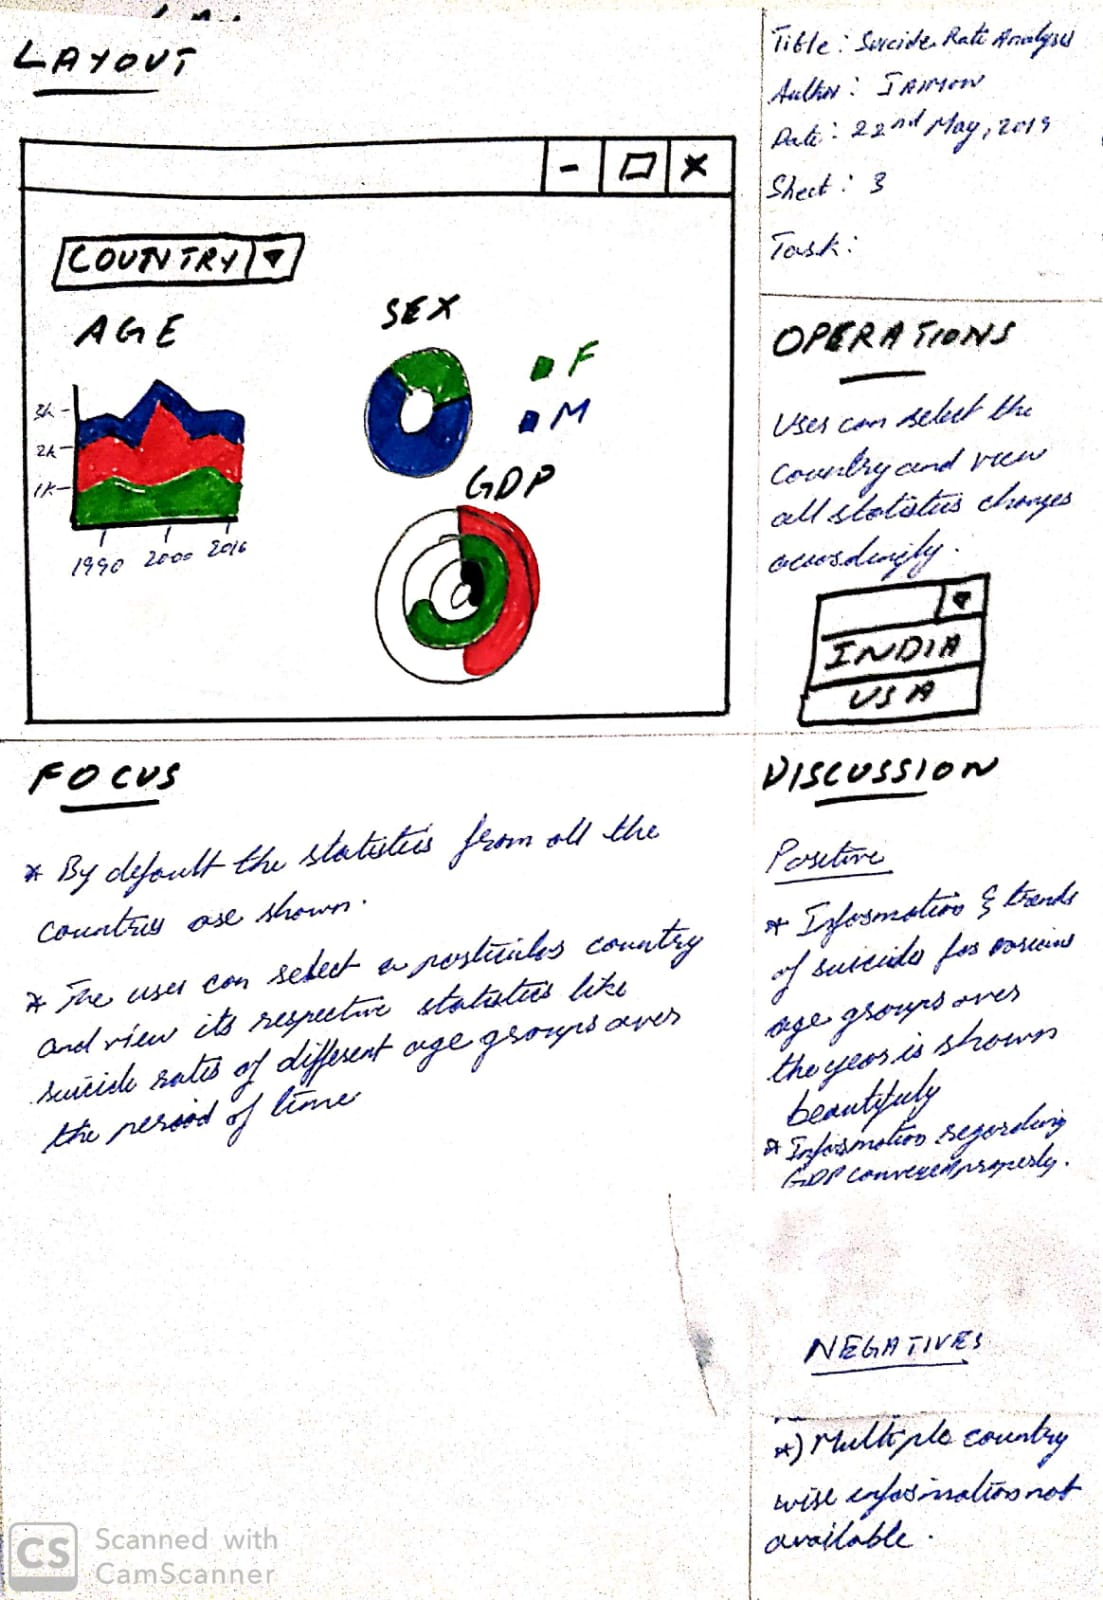 LAYOUT
Title: Suicide Rate Analysis
Author:
Date: 22nd May, 2019
Sheet: 3
Task:
COUNTRY
AGE
3k
2k
1k
1990 2000 2016
SEX
F
M
GDP
OPERATIONS
User can select the
country and view
all statistics changes
accordingly.
INDIA
USA
FOCUS
* By default the statistics from all the
countries are shown.
* The user can select a particular country
and view its respective statistics like
suicide rates of different age groups over
the period of time
DISCUSSION
Positive
* Information & trends
of suicide for various
age groups over
the year is shown
beautifuly
* Information regarding
GDP conveyed properly.
NEGATIVES
*) Multiple country
wise information not
available.
CS
Scanned with
CamScanner